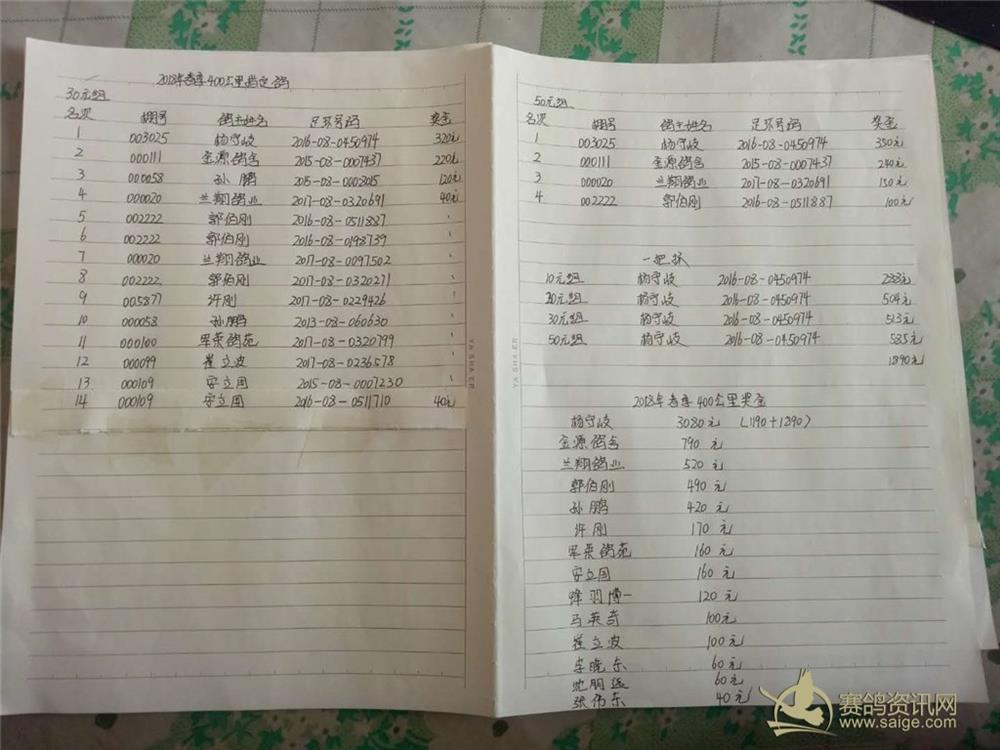 2018年春季400公里指定鸽
30元组
名次 棚号 鸽主姓名 足环号码 奖金
1 003025 杨守岐 2016-08-0450974 320元
2 000111 金源鸽舍 2015-08-0007437 220元
3 000058 孙鹏 2015-08-0003015 120元
4 000020 兰翔鸽业 2017-08-0320691 40元
5 002222 郭伯刚 2016-08-0511887
6 002222 郭伯刚 2016-08-0198739
7 000020 兰翔鸽业 2017-08-0097502
8 002222 郭伯刚 2017-08-0320271
9 005877 许刚 2017-08-0229426
10 000058 孙鹏 2013-08-060630
11 000100 军荣鸽苑 2017-08-0320799
12 000099 崔立波 2017-08-0236578
13 000109 安立国 2015-08-0007230
14 000109 安立国 2016-08-0511710 40元
YA SHA ER
50元组
名次 棚号 鸽主姓名 足环号码 奖金
1 003025 杨守岐 2016-08-0450974 350元
2 000111 金源鸽舍 2015-08-0007437 240元
3 000020 兰翔鸽业 2017-08-0320691 150元
4 002222 郭伯刚 2016-08-0511887 100元
一把抓
10元组 杨守岐 2016-08-0450974 288元
20元组 杨守岐 2016-08-0450974 504元
30元组 杨守岐 2016-08-0450974 513元
50元组 杨守岐 2016-08-0450974 585元
1890元
YA SHA ER
2018年春季400公里奖金
杨守岐 3080元 (1190+1890)
金源鸽舍 790元
兰翔鸽业 520元
郭伯刚 490元
孙鹏 420元
许刚 170元
军荣鸽苑 160元
安立国 160元
烽羽博一 120元
马英奇 100元
崔立波 100元
李晓东 60元
60元
张伟东 40元
赛鸽资讯网
www.saige.com